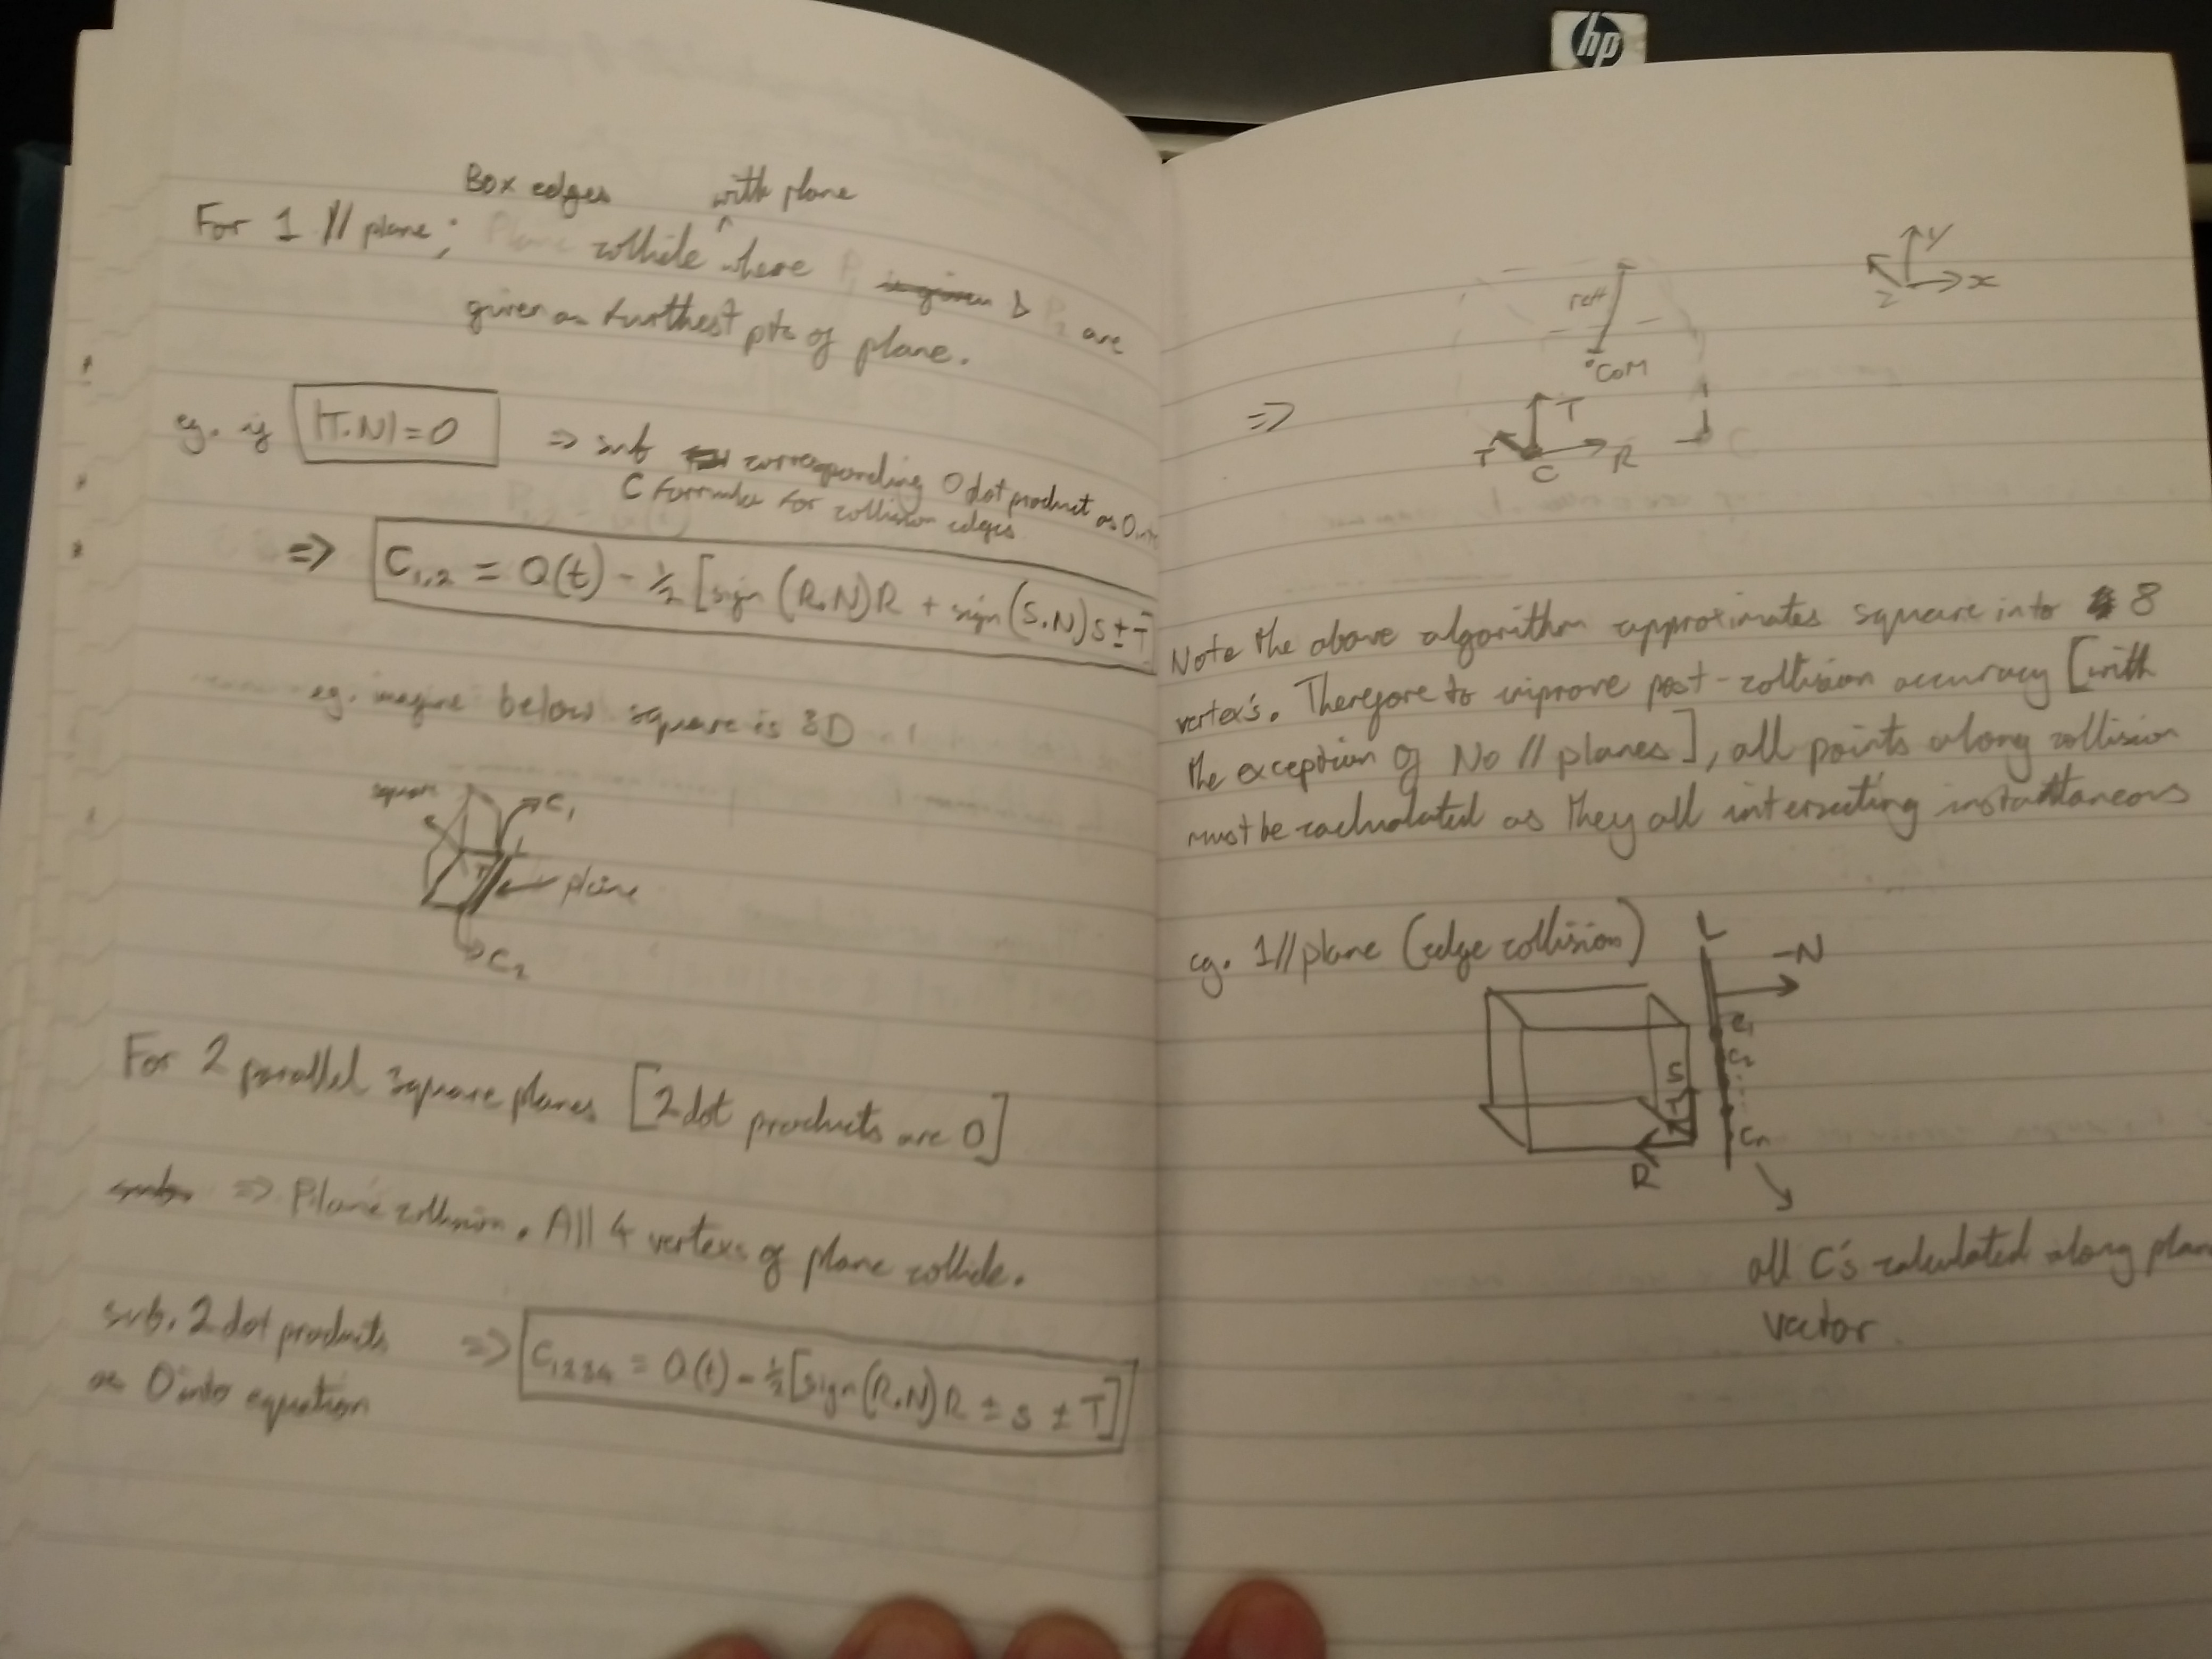 Box edges with plane
For 1 // plane; Plane collide ^ where P₁ is given & P₂ are
given as furthest pts of plane.
eg. if |T.N|=0 => sub corresponding 0 dot product as 0 into
C formula for collision edges
=> C₁,₂ = Q(t) - ½ [sign (R.N)R + sign(S.N)S ± T]
eg. imagine below square is 3D
square
C₁
S
T
plane
C₂
For 2 parallel square planes [2 dot products are 0]
sub. => Plane collision. All 4 vertexs of plane collide.
sub. 2 dot products
as 0 into equation
=> C₁₂₃₄ = Q(t) - ½[sign(R.N)R ± S ± T]
hp
y
x
z
CoM
=>
T
T
C
R
C
Note the above algorithm approximates square into 8
vertex's. Therefore to improve post-collision accuracy [with
the exception of No // planes], all points along collision
must be caclualated as they all intersecting instanttaneous
eg. 1 // plane (edge collision)
L
-N
C₁
C₂
S
T
Cn
R
all C's calculated along plan
vector.